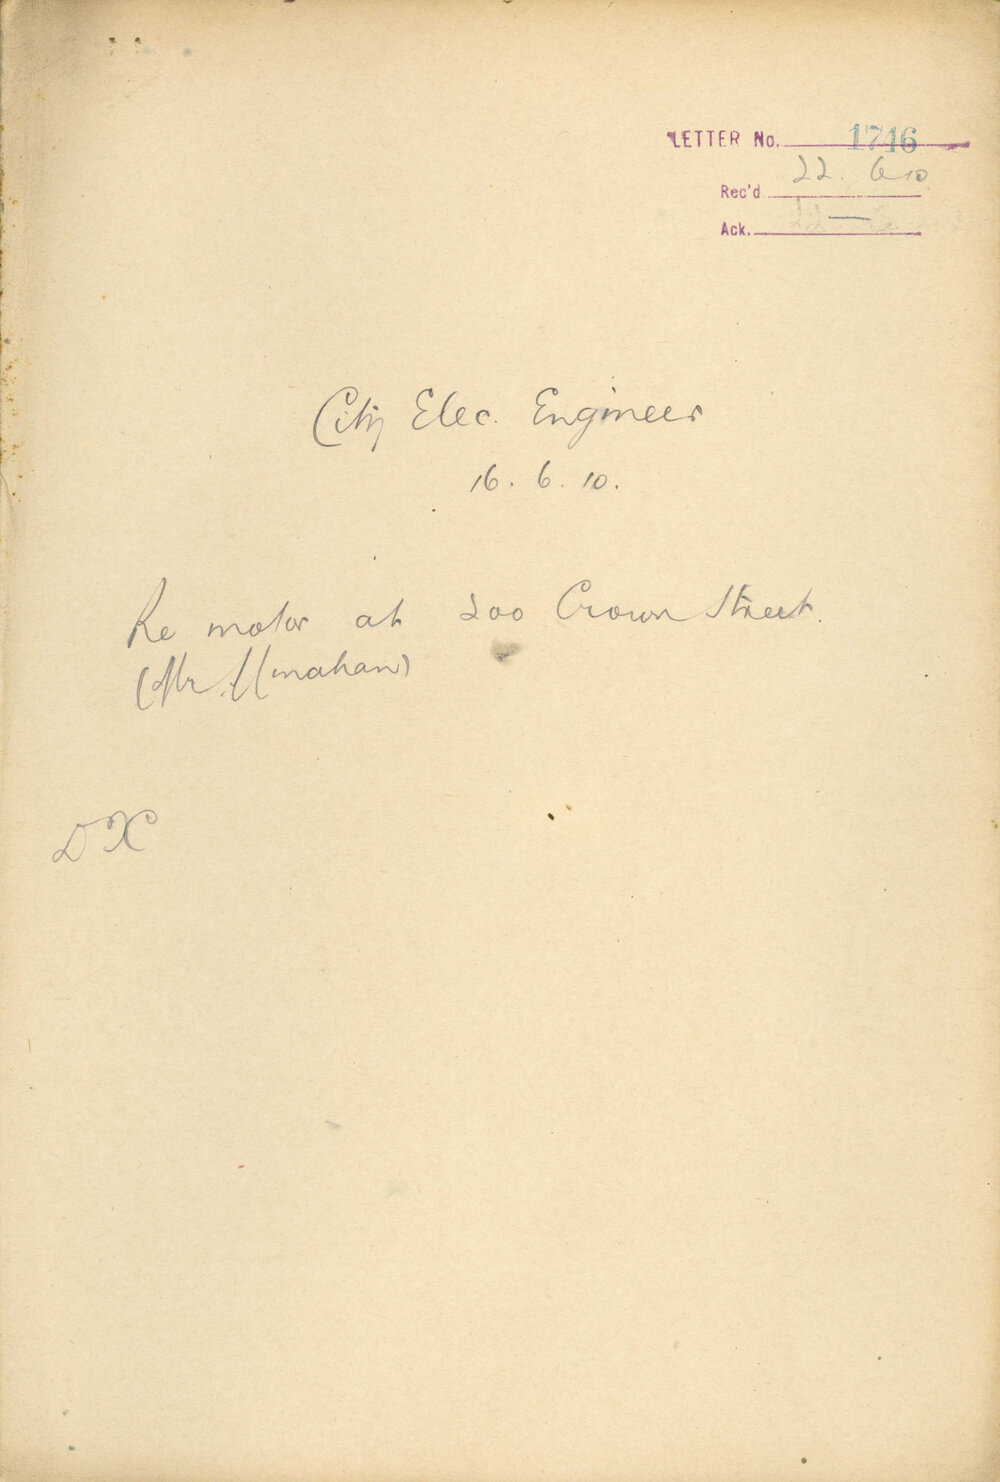 LETTER No. 1746
Rec'd 22. 6 10
Ack. 22 — 6
City Elec. Engineer
16. 6. 10.
Re motor at 200 Crown Street.
(Mr Minahan)